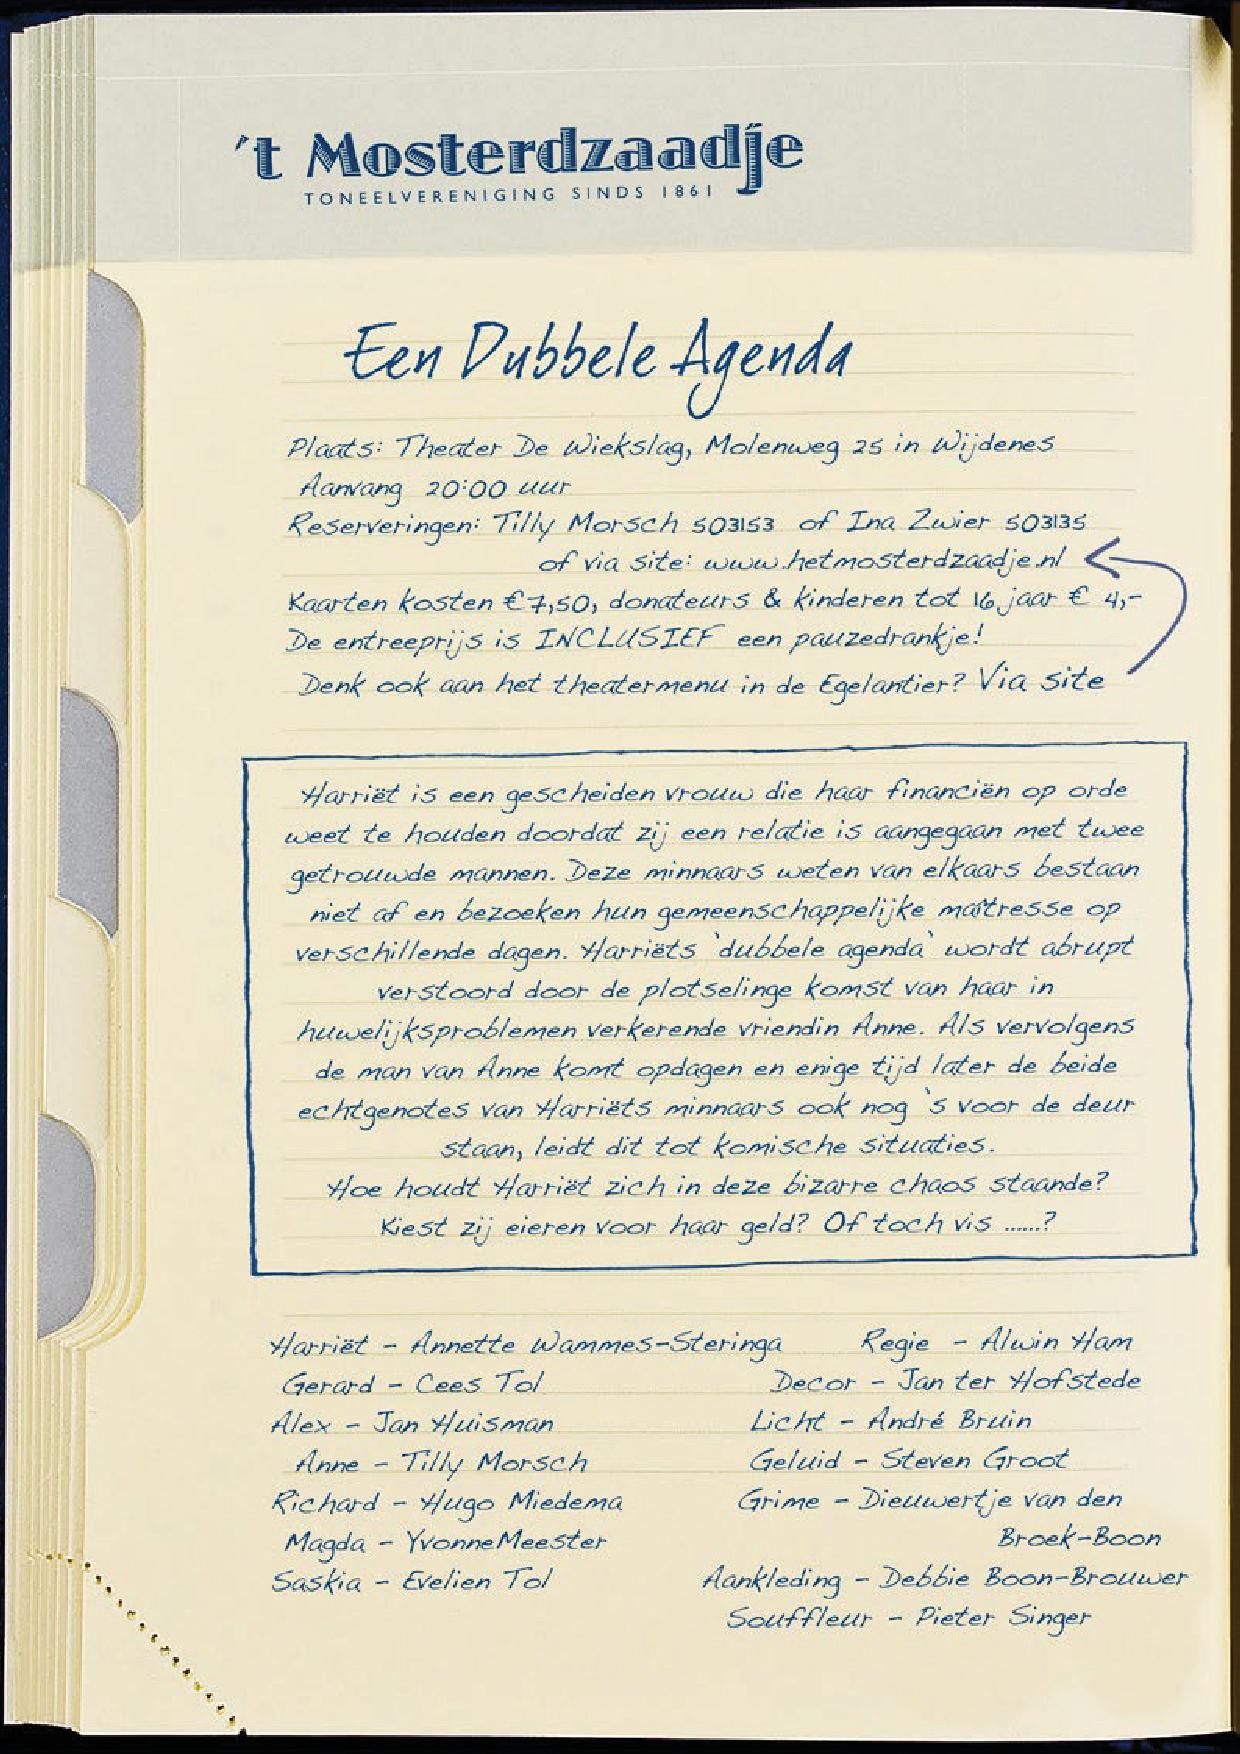 't Mosterdzaadje
TONEELVERENIGING SINDS 1861
Een Dubbele Agenda
Plaats: Theater De Wiekslag, Molenweg 25 in Wijdenes
Aanvang 20:00 uur
Reserveringen: Tilly Morsch 503153 of Ina Zwier 503135
of via site: www.hetmosterdzaadje.nl
Kaarten kosten €7,50, donateurs & kinderen tot 16 jaar € 4,-
De entreeprijs is INCLUSIEF een pauzedrankje!
Denk ook aan het theatermenu in de Egelantier? Via site
Harriët is een gescheiden vrouw die haar financiën op orde
weet te houden doordat zij een relatie is aangegaan met twee
getrouwde mannen. Deze minnaars weten van elkaars bestaan
niet af en bezoeken hun gemeenschappelijke maîtresse op
verschillende dagen. Harriëts `dubbele agenda` wordt abrupt
verstoord door de plotselinge komst van haar in
huwelijksproblemen verkerende vriendin Anne. Als vervolgens
de man van Anne komt opdagen en enige tijd later de beide
echtgenotes van Harriëts minnaars ook nog `s voor de deur
staan, leidt dit tot komische situaties.
Hoe houdt Harriët zich in deze bizarre chaos staande?
Kiest zij eieren voor haar geld? Of toch vis ......?
Harriët - Annette Wammes-Steringa Regie - Alwin Ham
Gerard - Cees Tol Decor - Jan ter Hofstede
Alex - Jan Huisman Licht - André Bruin
Anne - Tilly Morsch Geluid - Steven Groot
Richard - Hugo Miedema Grime - Dieuwertje van den
Magda - YvonneMeester Broek-Boon
Saskia - Evelien Tol Aankleding - Debbie Boon-Brouwer
Souffleur - Pieter Singer